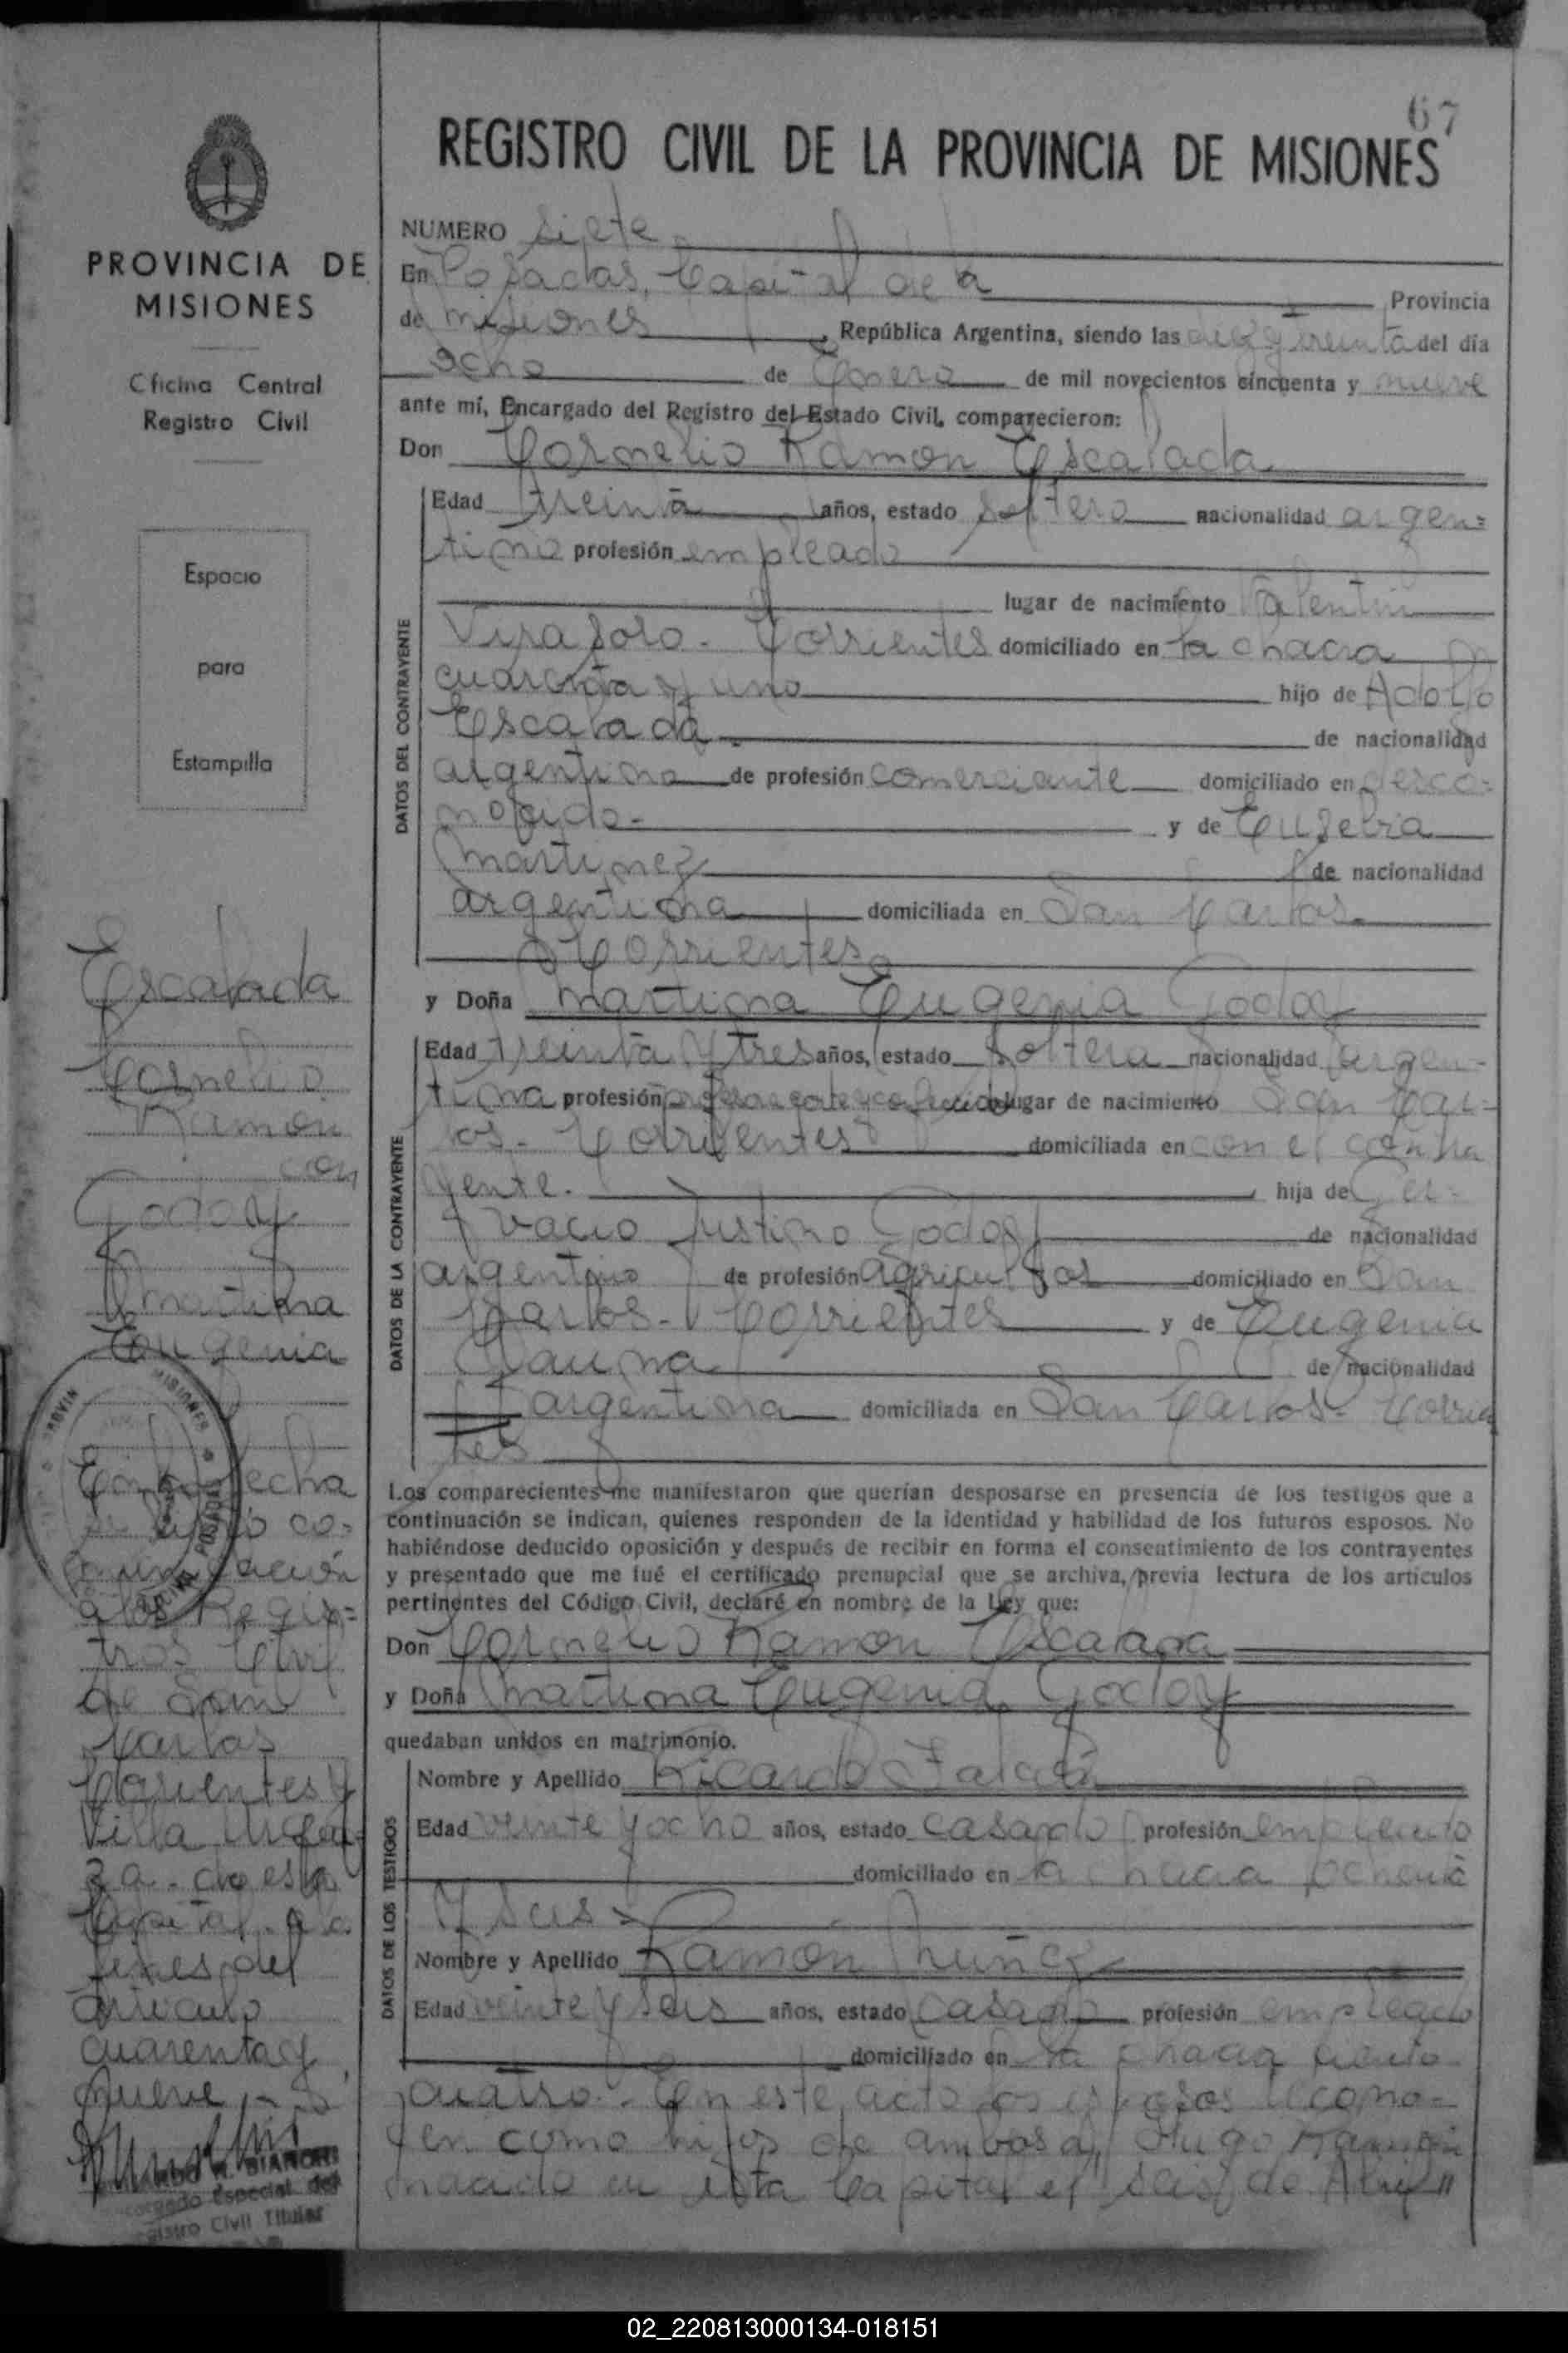 67
REGISTRO CIVIL DE LA PROVINCIA DE MISIONES
PROVINCIA DE
MISIONES
Oficina Central
Registro Civil
Espacio
para
Estampilla
Escalada
Cornelio
Ramon
con
Godoy
Martina
Eugenia
En la fecha
co-
municación
a los Regis-
tros Civil
de San
Carlos
Corrientes y
Villa Urqui-
za de esta
Capital a los
fines del
articulo
cuarenta y
nueve
BIANCHI
Encargado Especial del
Registro Civil Titular
NUMERO siete
En Posadas, Capital de la Provincia
de Misiones, República Argentina, siendo las diez y treinta del día
ocho de Enero de mil novecientos cincuenta y nueve
ante mí, Encargado del Registro del Estado Civil, comparecieron:
Don Cornelio Ramon Escalada
DATOS DEL CONTRAYENTE
Edad treinta años, estado soltero nacionalidad argen=
tino profesión empleado
lugar de nacimiento Valentin
Virasoro - Corrientes domiciliado en la chacra
cuarenta y uno hijo de Adolfo
Escalada de nacionalidad
argentina de profesión comerciante domiciliado en desco-
nocido- y de Eusebia
Martinez de nacionalidad
argentina domiciliada en San Carlos-
Corrientes
y Doña Martina Eugenia Godoy
DATOS DE LA CONTRAYENTE
Edad treinta y tres años, estado soltera nacionalidad argen-
tina profesión profesora corte y confeccion lugar de nacimiento San Car-
los- Corrientes domiciliada en con el contra
yente. hija de Ger-
vacio Justino Godoy de nacionalidad
argentino de profesión agricultor domiciliado en San
Carlos- Corrientes y de Eugenia
Gauna de nacionalidad
argentina domiciliada en San Carlos- Corrien
tes
Los comparecientes me manifestaron que querían desposarse en presencia de los testigos que a
continuación se indican, quienes responden de la identidad y habilidad de los futuros esposos. No
habiéndose deducido oposición y después de recibir en forma el consentimiento de los contrayentes
y presentado que me fué el certificado prenupcial que se archiva, previa lectura de los artículos
pertinentes del Código Civil, declaré en nombre de la Ley que:
Don Cornelio Ramon Escalada
y Doña Martina Eugenia Godoy
quedaban unidos en matrimonio.
DATOS DE LOS TESTIGOS
Nombre y Apellido Ricardo
Edad veinte y ocho años, estado casado profesión empleado
domiciliado en la chacra ochenta
y seis
Nombre y Apellido Ramon Nuñez
Edad veinte y seis años, estado casado profesión empleado
domiciliado en la chacra ciento
cuatro.- En este acto los esposos recono-
cen como hijos de ambos a, Hugo Ramon
nacido en esta Capital el seis de Abril
02_220813000134-018151